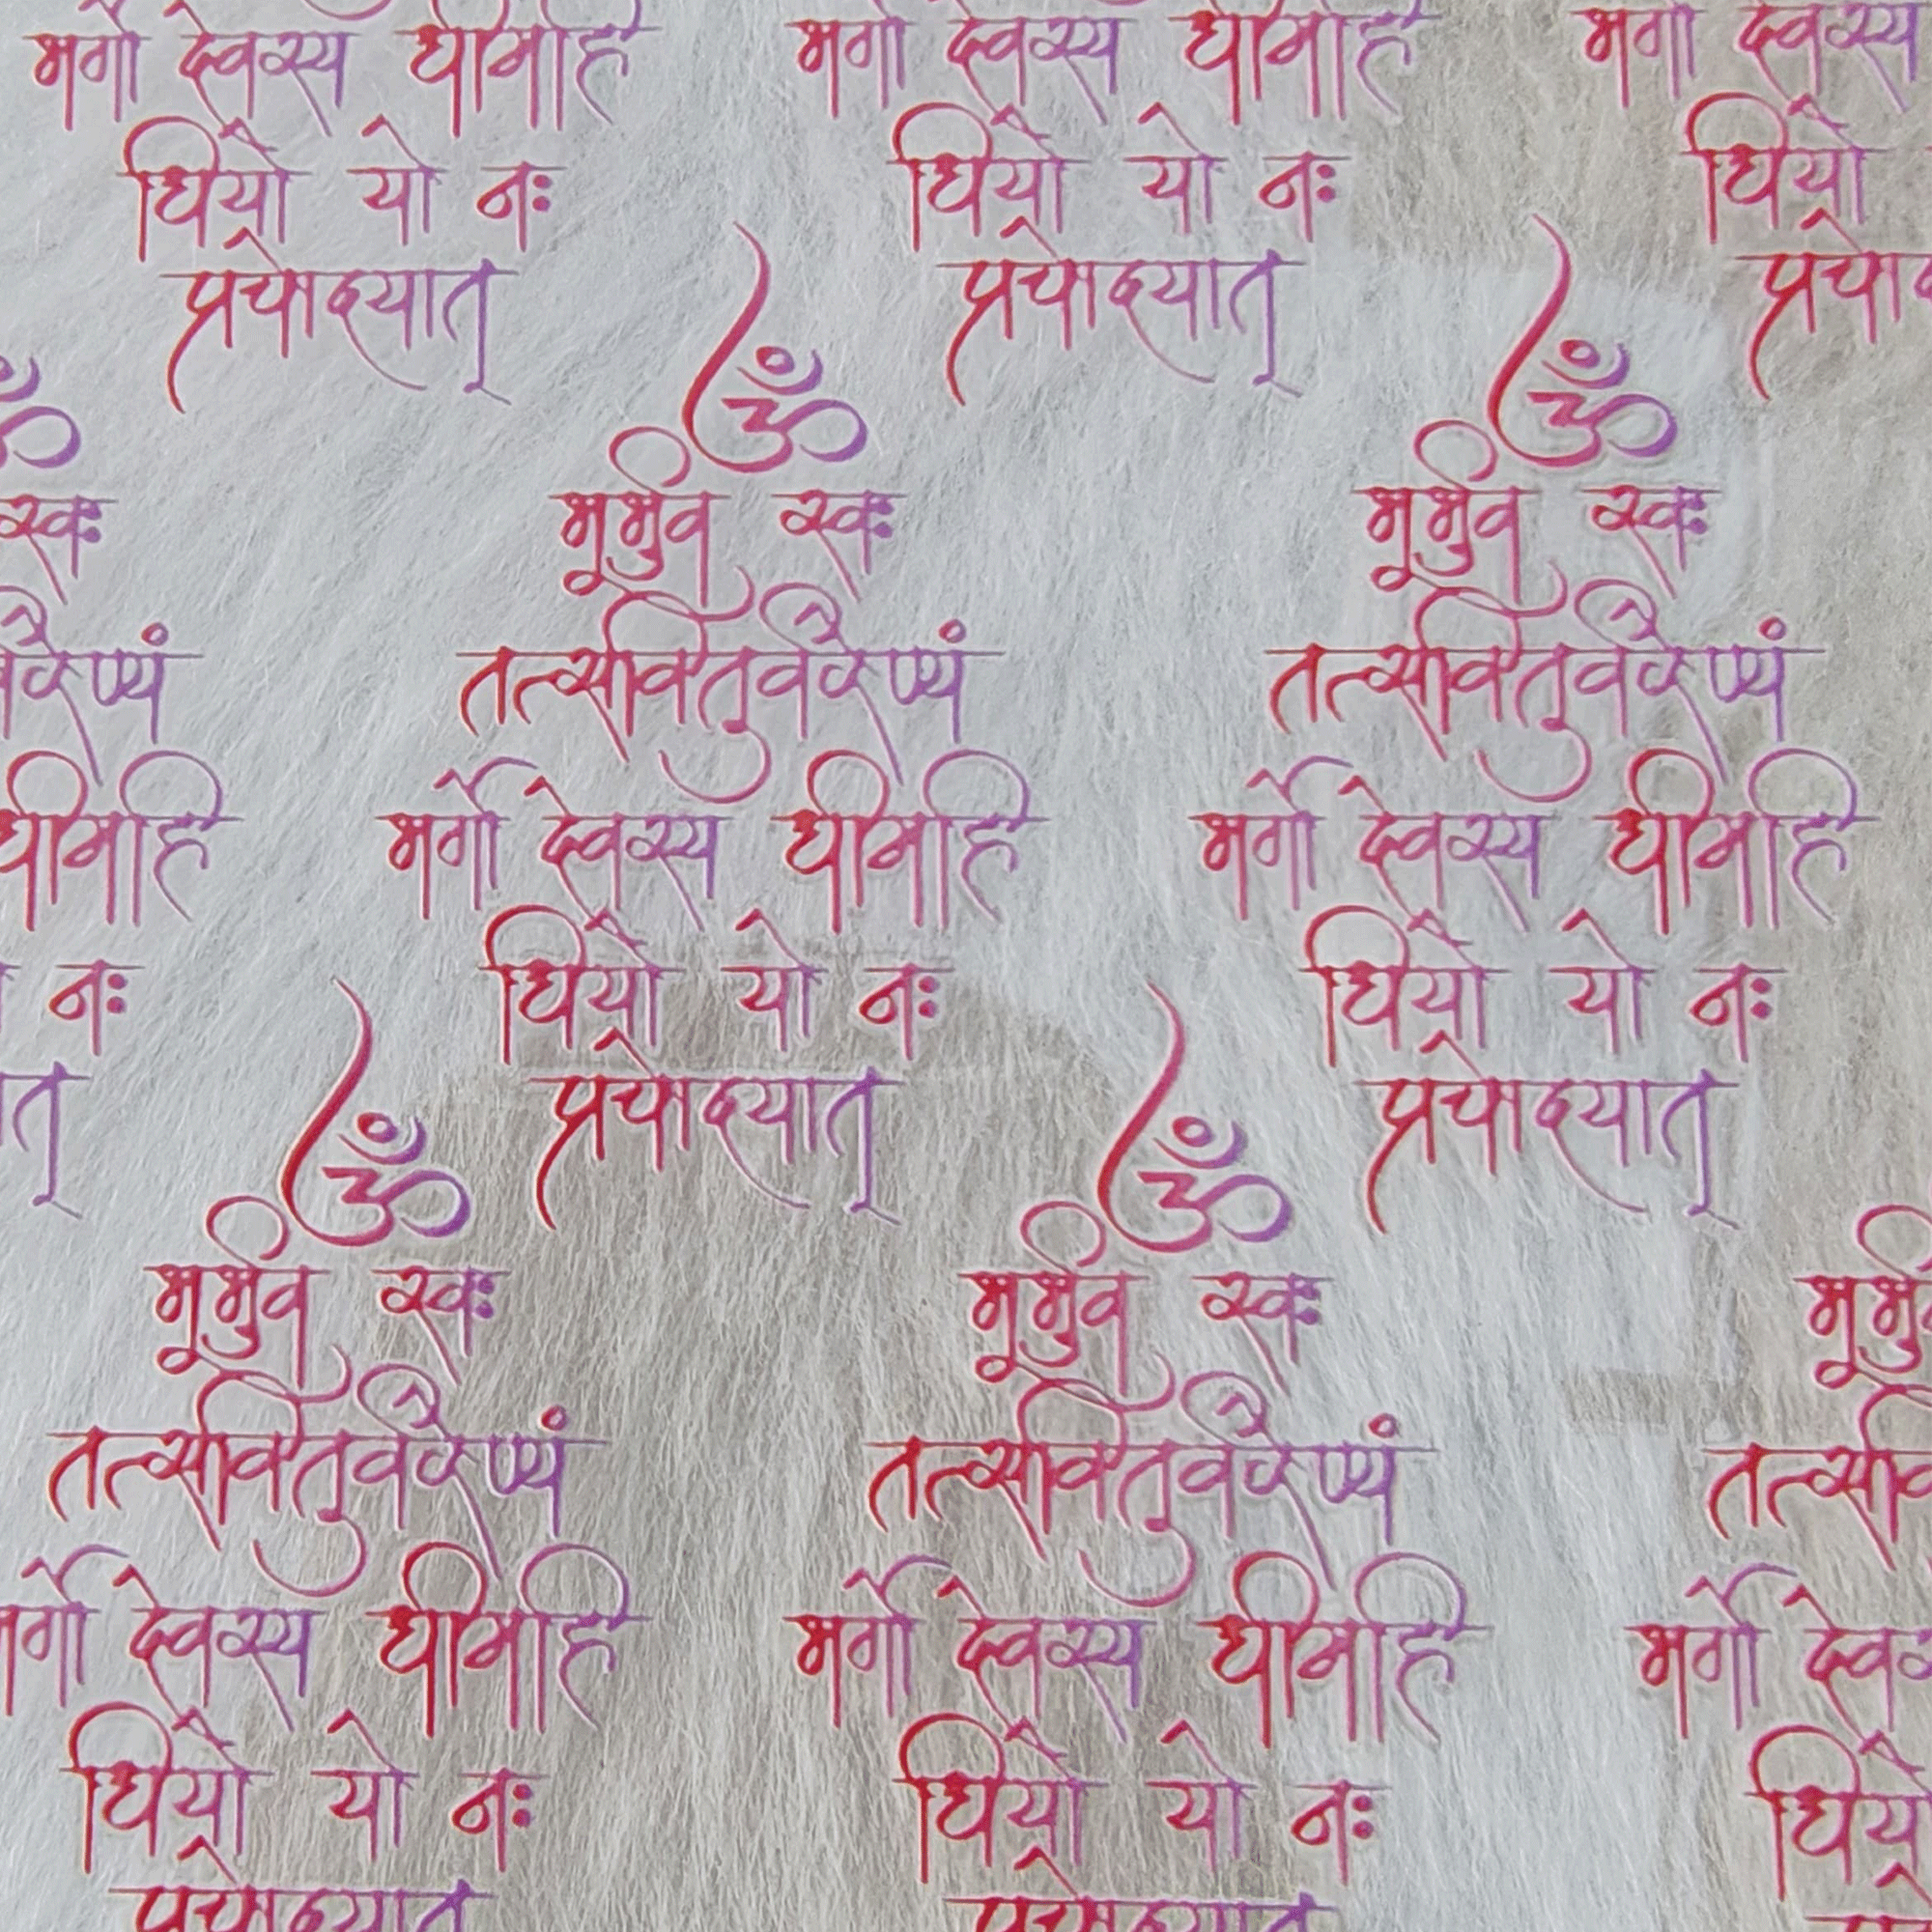 भर्गो देवस्य धीमहि
धियो यो नः
प्रचोदयात्
भर्गो देवस्य धीमहि
धियो यो नः
प्रचोदयात्
भर्गो देवस्य
धियो
ॐ
स्वः
नः
ॐ
भूर्भुव स्वः
तत्सवितुर्वरेण्यं
भर्गो देवस्य धीमहि
धियो यो नः
प्रचोदयात्
ॐ
भूर्भुव स्वः
तत्सवितुर्वरेण्यं
भर्गो देवस्य धीमहि
धियो यो नः
प्रचोदयात्
ॐ
भूर्भुव स्वः
तत्सवितुर्वरेण्यं
भर्गो देवस्य धीमहि
धियो यो नः
प्रचोदयात्
ॐ
भूर्भुव स्वः
तत्सवितुर्वरेण्यं
भर्गो देवस्य धीमहि
धियो यो नः
प्रचोदयात्
भर्गो